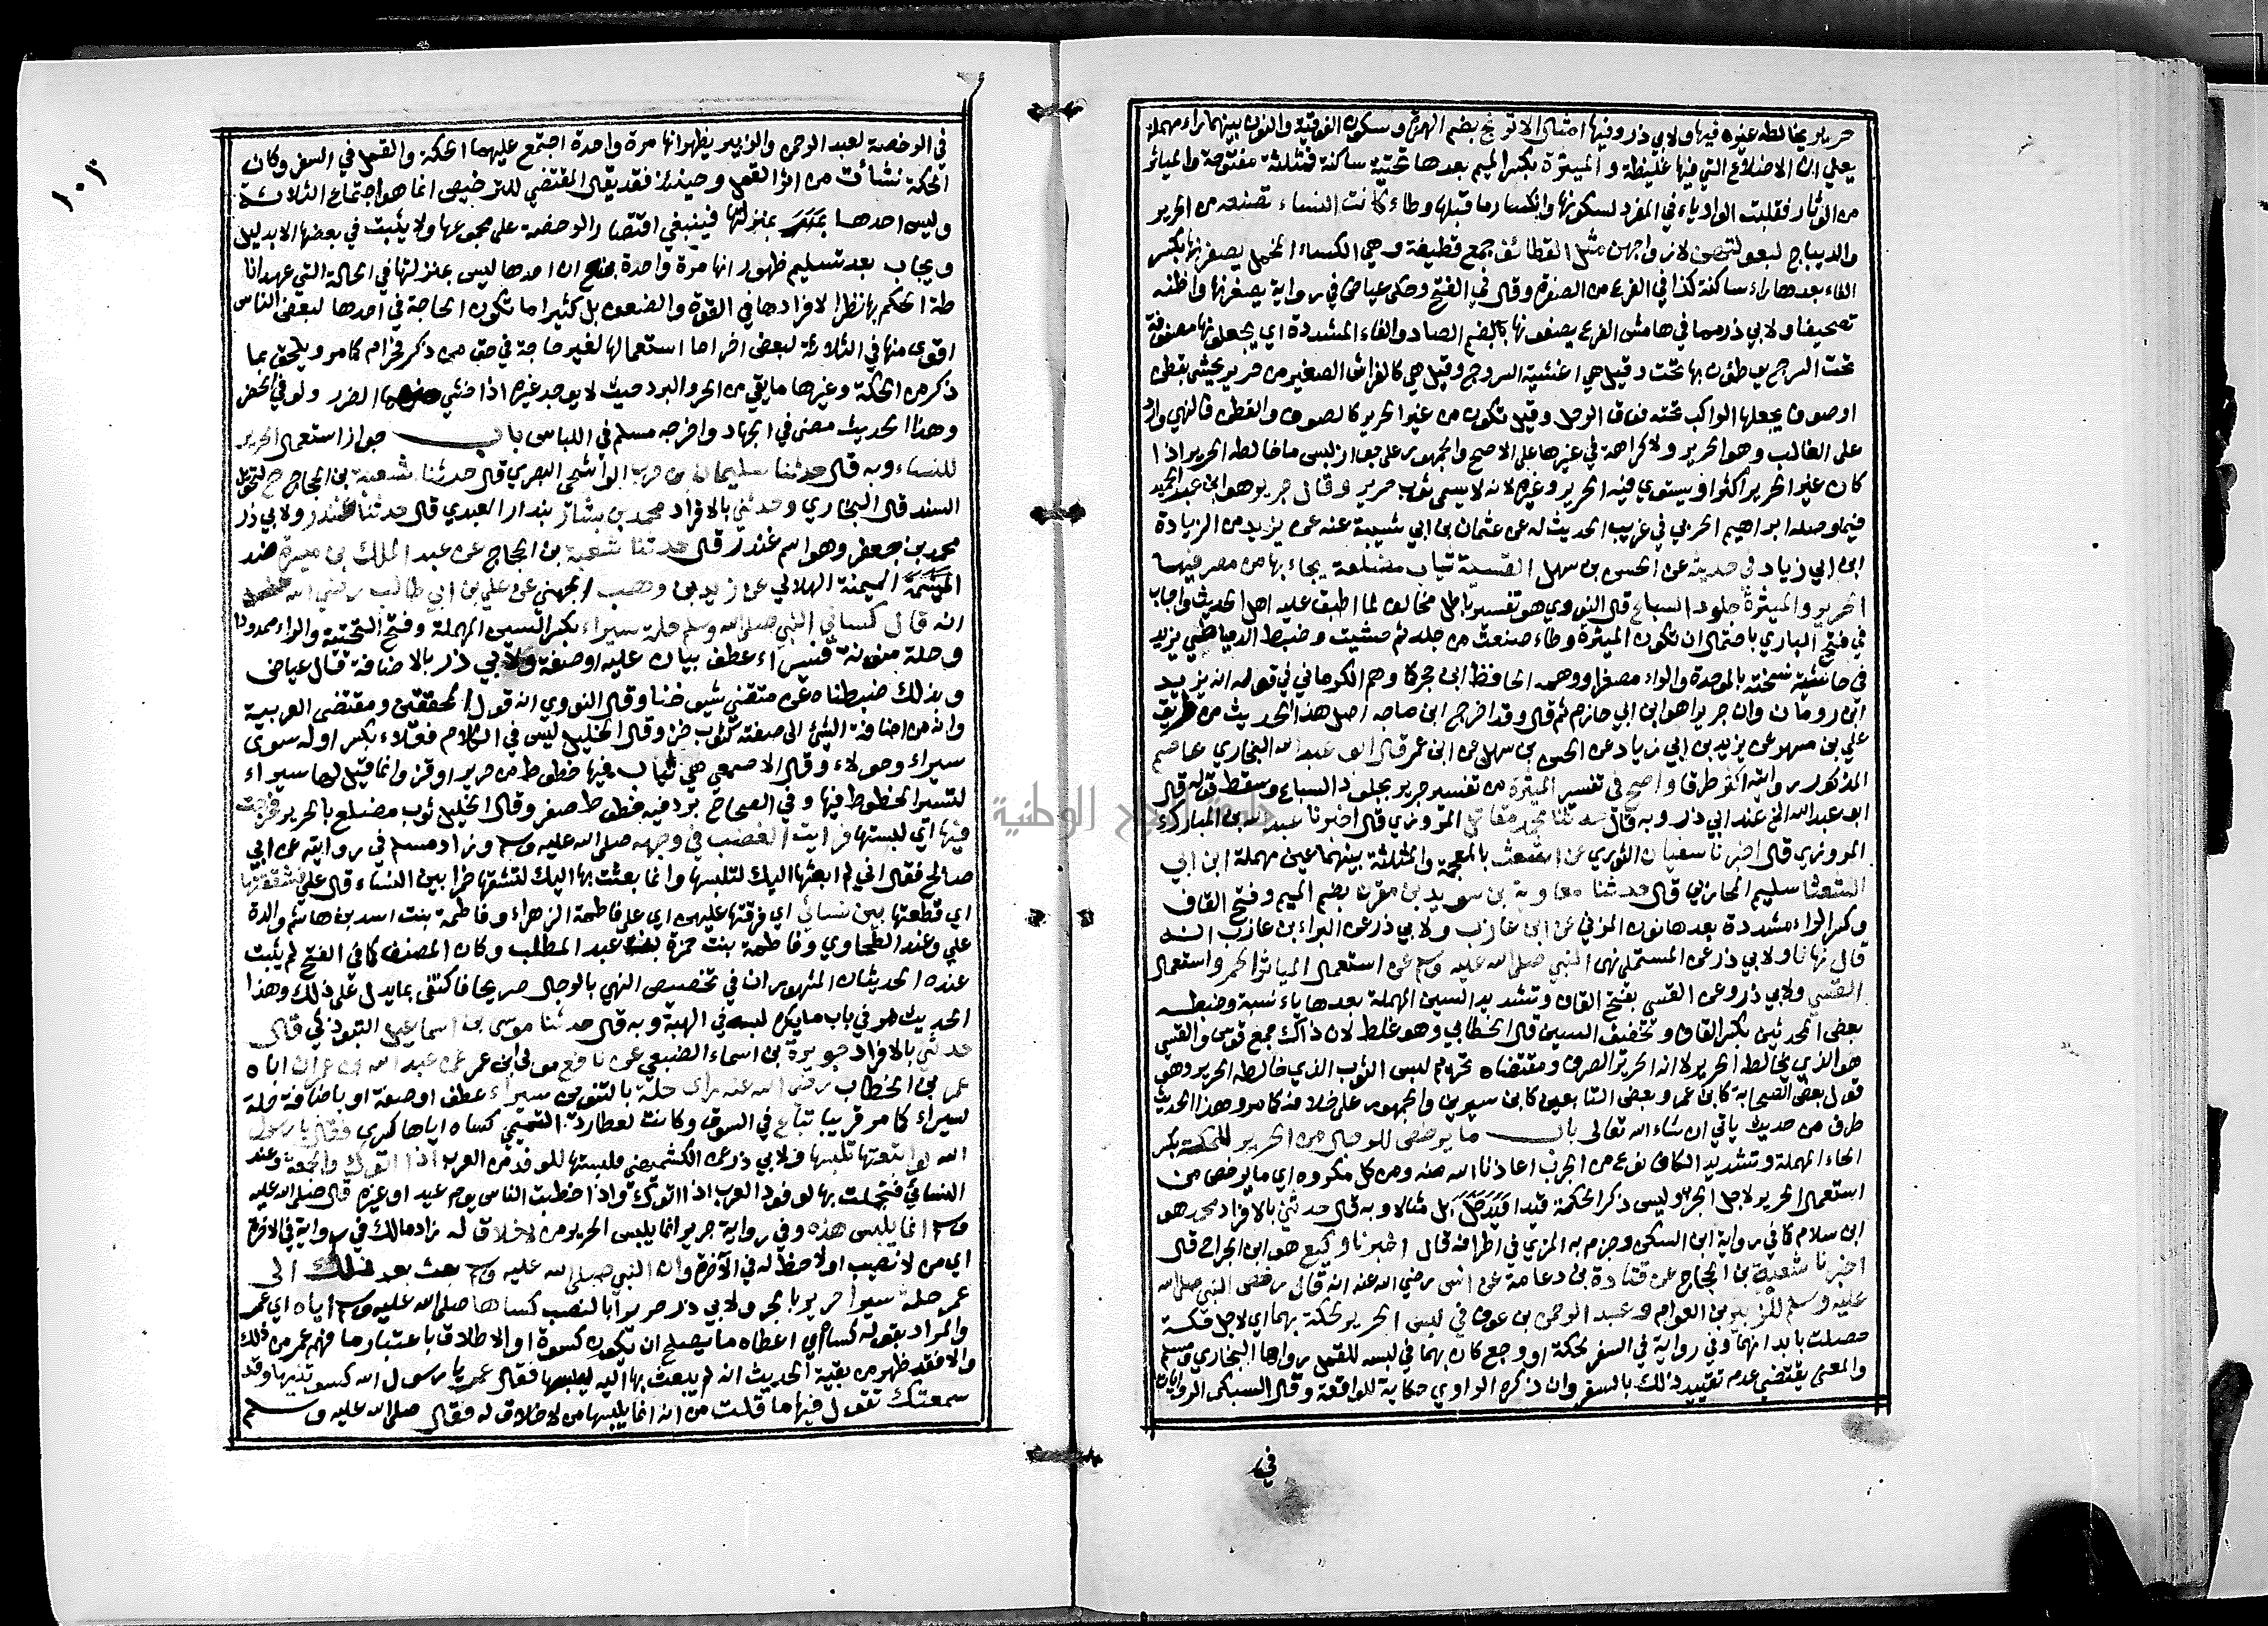 حرير يخالطه غيره فيها ولابي ذر وفيها امثال الاترنج بضم الهمزة وسكون الفوقية والنون بينهما راء مهملة
يعني ان الاضلاع التي فيها غليظة والميثرة بكسر الميم بعدها تحتية ساكنة فمثلثة مفتوحة والمياثر
من الوثار فقلبت الواو ياء في المفرد لسكونها وانكسار ما قبلها وطاء كانت النساء تصنعه من الحرير
والديباج لبعولتهن لازواجهن مثل القطائف جمع قطيفة وهي الكساء المخمل يصفرنها بكسر
الفاء بعدها راء ساكنة كذا في الفرع من الصفرة وقال في الفتح وحكى عياض في رواية يصفرنها واظنه
تصحيفا ولابي ذر مما في هامش الفرع يصفونها بالضم الصاد والفاء المشددة اي يجعلونها مصفوفة
تحت السرج يوطئون بها تحت وقيل هي اغشية السروج وقيل هي كالفراش الصغير من حرير يحشى بقطن
او صوف يجعلها الراكب تحته فوق الرحل وقيل تكون من غير الحرير كالصوف والقطن فالنهي وارد
على الغالب وهو الحرير ولا كراهة في غيرها على الاصح والجمهور على جواز لبس ما خالطه الحرير اذا
كان غير الحرير اكثر او يستوي فيه الحرير وغيره لانه لا يسمى ثوب حرير وقال جرير هو ابن عبد الحميد
فيما وصله ابراهيم الحربي في غريب الحديث له عن عثمان بن ابي شيبة عنه عن يزيد من الزيادة
ابن ابي زياد في حديثه عن الحسن بن سهل القسية ثياب مضلعة يجاء بها من مصر فيها
الحرير والميثرة جلود السباع قال النووي هو تفسير باطل مخالف لما اطبق عليه اهل الحديث واجاب
في فتح الباري باحتمال ان تكون الميثرة وطاء صنعت من جلد ثم حشيت وضبط الدمياطي يزيد
في حاشية نسخته بالموحدة والراء مصغرا ووهمه الحافظ ابن حجر كما وهم الكرماني في قوله انه يزيد
ابن رومان وان جريرا هو ابن ابي حازم ثم قال وقد اخرج ابن ماجه اصل هذا الحديث من طريق
علي بن مسهر عن يزيد بن ابي زياد عن الحسن بن سهل عن ابن عمر قال ابو عبد الله البخاري عاصم
المذكور روايته اكثر طرقا واصح في تفسير الميثرة من تفسير جرير بجلود السباع وسقط قوله قال
ابو عبد الله الخ عند ابي ذر وبه قال حدثنا محمد بن مقاتل المروزي قال اخبرنا عبد الله بن المبارك
المروزي قال اخبرنا سفيان الثوري عن اشعث بالمعجمة والمثلثة بينهما عين مهملة ابن ابي
الشعثا سليم المحاربي قال حدثنا معاوية بن سويد بن مقرن بضم الميم وفتح القاف
وكسر الراء مشددة بعدها نون المزني عن ابن عازب ولابي ذر عن البراء بن عازب انه
قال نهانا ولابي ذر عن المستملي نهى النبي صلى الله عليه وسلم عن استعمال المياثر الحمر واستعمال
القسي ولابي ذر وعن القسي بفتح القاف وتشديد السين المهملة بعدها ياء نسبة وضبطه
بعض المحدثين بكسر القاف وتخفيف السين قال الخطابي وهو غلط لان ذاك جمع قوس والقسي
هو الذي يخالطه الحرير لا انه الحرير الصرف ومقتضاه تحريم لبس الثوب الذي خالطه الحرير وهي
قول بعض الصحابة كابن عمر وبعض التابعين كابن سيرين والجمهور على خلافه كما مر وهذا الحديث
طرف من حديث ياتي ان شاء الله تعالى باب ما يرخص للرجال من الحرير للحكة بكسر
الحاء المهملة وتشديد الكاف نوع من الجرب اعاذنا الله منه ومن كل مكروه اي ما يرخص من
استعمال الحرير لاجل الجرب وليس ذكر الحكة قيدا بل مثالا وبه قال حدثني بالافراد محمد هو
ابن سلام كما في رواية ابن السكن وجزم به المزي في اطرافه قال اخبرنا وكيع هو ابن الجراح قال
اخبرنا شعبة بن الحجاج عن قتادة بن دعامة عن انس رضي الله عنه انه قال رخص النبي صلى الله
عليه وسلم للزبير بن العوام وعبد الرحمن بن عوف في لبس الحرير لحكة بهما اي لاجل حكة
حصلت بابدانهما وفي رواية في السفر لحكة او وجع كان بهما في لبسه للقمل رواها البخاري ومسلم
والمعنى يقتضي عدم تقييد ذلك بالسفر وان ذكره الراوي حكاية للواقعة وقال السبكي الروايات
في
١٠٣
في الرخصة لعبد الرحمن والزبير يظهر انها مرة واحدة اجتمع عليهما الحكة والقمل في السفر وكان
الحكة نشأت من اثر القمل وحينئذ فقد يقال المقتضي للترخيص انما هو اجتماع الثلاثة
وليس احدها بمنزلتها فينبغي اقتصار الرخصة على مجموعها ولا يثبت في بعضها الا بدليل
ويجاب بعد تسليم ظهور انها مرة واحدة بمنع ان احدها ليس بمنزلتها في الحالة التي عهد انا
طة الحكم بها نظرا لافرادها في القوة والضعف بل كثيرا ما تكون الحاجة في احدها لبعض الناس
اقوى منها في الثلاثة لبعض اخر اما استعمالها لغير حاجة في حق من ذكر فحرام كما مر ويلحق بما
ذكر من الحكة وغيرها ما يقي من الحر والبرد حيث لا يوجد غيره اذا خشي منهما الضرر ولو في الحضر
وهذا الحديث مضى في الجهاد واخرجه مسلم في اللباس باب جواز استعمال الحرير
للنساء وبه قال حدثنا سليمان بن حرب الواشحي البصري قال حدثنا شعبة بن الحجاج ح لتحويل
السند قال البخاري وحدثني بالافراد محمد بن بشار بندار العبدي قال حدثنا غندر ولابي ذر
محمد بن جعفر وهو اسم غندر قال حدثنا شعبة بن الحجاج عن عبد الملك بن ميسرة ضد
الميمنة الهلالي عن زيد بن وهب الجهني عن علي بن ابي طالب رضي الله عنه
انه قال كساني النبي صلى الله وسلم حلة سيراء بكسر السين المهملة وفتح التحتية والراء ممدودا
وحلة منونة فسيراء عطف بيان عليه او صفة ولابي ذر بالاضافة قال عياض
وبذلك ضبطناه عن متقني شيوخنا وقال النووي انه قول المحققين ومقتضى العربية
وانه من اضافة الشئ الى صفته كثوب خز وقال الخليل ليس في الكلام فعلاء بكسر اوله سوى
سيراء وحولاء وقال الاصمعي هي ثياب فيها خطوط من حرير او قز وانما قيل لها سيراء
لتسير الخطوط فيها وفي الصحاح برد فيه خطوط صفر وقال الخليل ثوب مضلع بالحرير فخرجت
فيها اي لبستها فرايت الغضب في وجهه صلى الله عليه وسلم وزاد مسلم في روايته عن ابي
صالح فقال اني لم ابعثها اليك لتلبسها وانما بعثت بها اليك لتشقها خمرا بين النساء قال علي فشققتها
اي قطعتها بين نسائي اي فرقتها عليهن اي على فاطمة الزهراء وفاطمة بنت اسد بن هاشم والدة
علي وعند الطحاوي وفاطمة بنت حمزة بن عبد المطلب وكان المصنف كما في الفتح لم يثبت
عنده الحديثان المشهوران في تخصيص النهي بالرجال صريحا فاكتفى بما يدل على ذلك وهذا
الحديث مر في باب ما يكره لبسه في الهبة وبه قال حدثنا موسى بن اسماعيل التبوذكي قال
حدثني بالافراد جويرية بن اسماء الضبعي عن نافع مولى ابن عمر عن عبد الله بن عمر ان اباه
عمر بن الخطاب رضي الله عنه راى حلة بالتنوين سيراء عطف او صفة او باضافة حلة
لسيراء كما مر قريبا تباع في السوق وكانت لعطارد التميمي كساه اياها كسرى فقال يا رسول
الله لو ابتعتها تلبسها ولابي ذر عن الكشميهني فلبستها للوفد من العرب اذا اتوك والجمعة وعند
النسائي فتجملت بها لوفود العرب اذا اتوك واذا خطبت الناس يوم عيد او غيره قال صلى الله عليه
وسلم انما يلبس هذه وفي رواية جرير انما يلبس الحرير من لا خلاق له زاد مالك في رواية في الاخرة
اي من لا نصيب او لا حظ له في الآخرة وان النبي صلى الله عليه وسلم بعث بعد ذلك الى
عمر حلة سيرا حرير بالجر ولابي ذر حريرا بالنصب كساها صلى الله عليه وسلم اياه اي عمر
والمراد بقوله كساه اي اعطاه ما يصلح ان يكون كسوة او الاطلاق باعتبار ما فهم عمر من ذلك
والا فقد ظهر من بقية الحديث انه لم يبعث بها اليه ليلبسها فقال عمر يا رسول الله كسوتنيها وقد
سمعتك تقول فيها ما قلت من انه انما يلبسها من لا خلاق له فقال صلى الله عليه وسلم